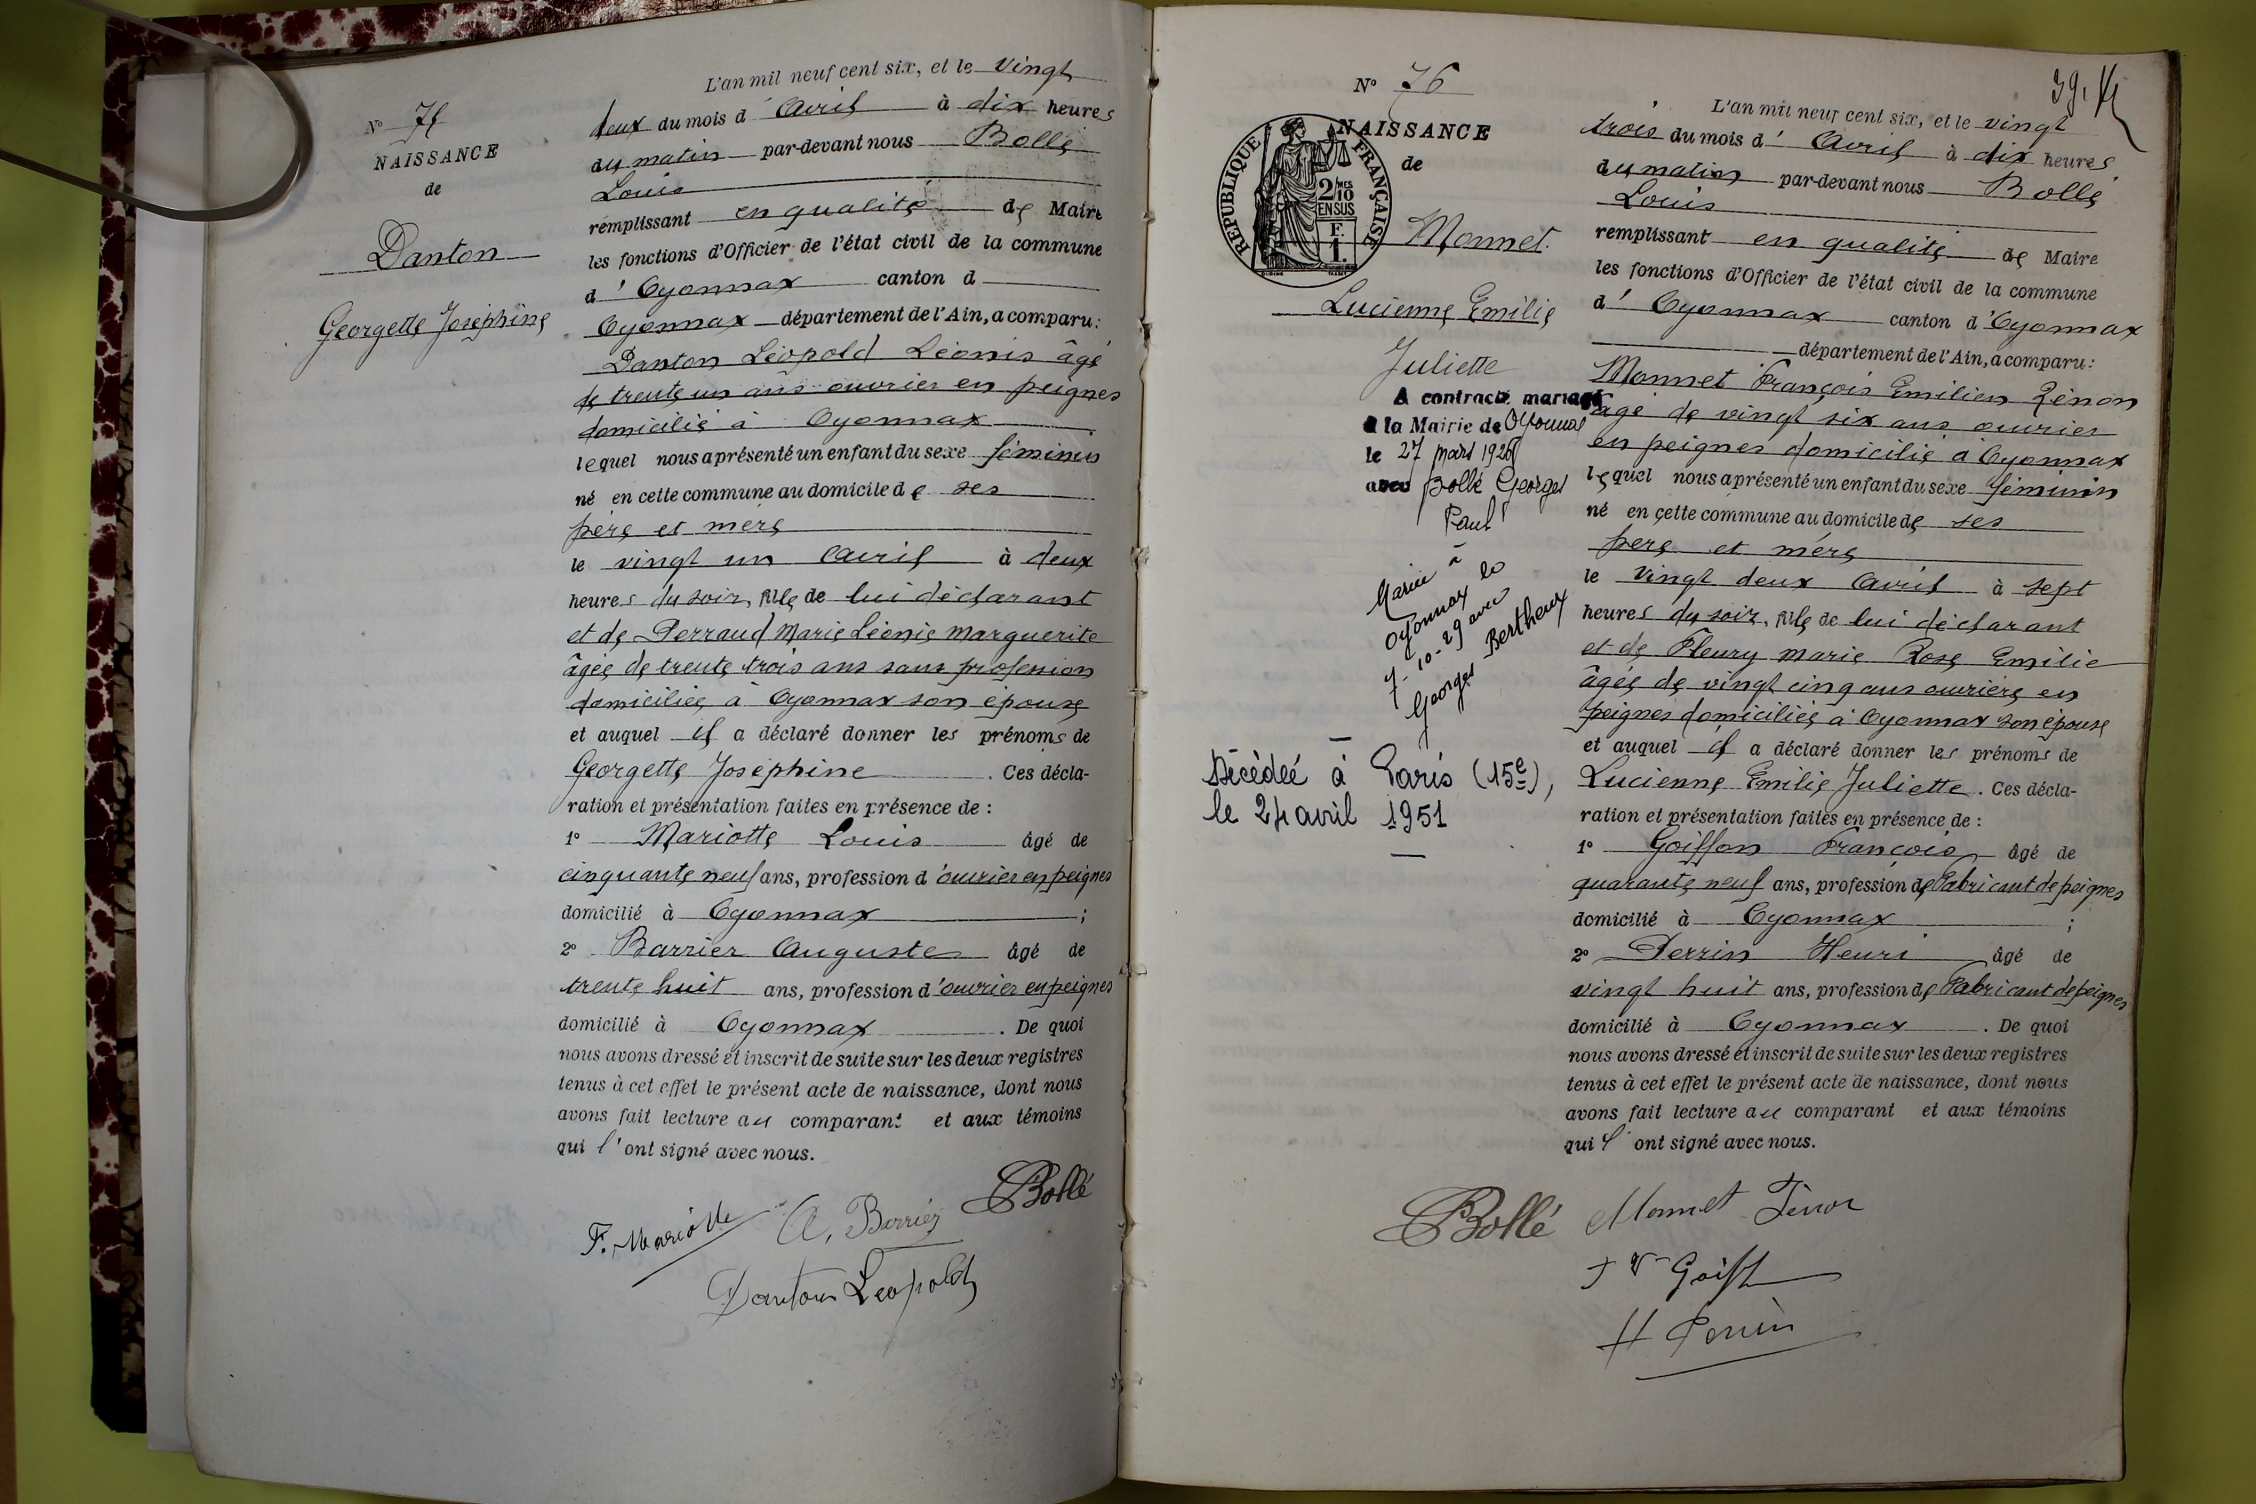 L'an mil neuf cent six, et le vingt
N° 75
deux du mois d'Avril à dix heures
NAISSANCE
du matin par-devant nous Bollé
de
Louis
remplissant en qualité de Maire
Danton
les fonctions d'Officier de l'état civil de la commune
d'Oyonnax canton d
Georgette Joséphine
Oyonnax département de l'Ain, a comparu:
Danton Léopold Léonis âgé
de trente un ans ouvrier en peignes
domicilié à Oyonnax
lequel nous a présenté un enfant du sexe féminin
né en cette commune au domicile de ses
père et mère
le vingt un Avril à deux
heures du soir, fille de lui déclarant
et de Perraud Marie Léonie Marguerite
âgée de trente trois ans sans profession
domiciliée à Oyonnax son épouse
et auquel il a déclaré donner les prénoms de
Georgette Joséphine. Ces décla-
ration et présentation faites en présence de :
1° Mariotte Louis âgé de
cinquante neuf ans, profession d'ouvrier en peignes
domicilié à Oyonnax ;
2° Barrier Auguste âgé de
trente huit ans, profession d'ouvrier en peignes
domicilié à Oyonnax. De quoi
nous avons dressé et inscrit de suite sur les deux registres
tenus à cet effet le présent acte de naissance, dont nous
avons fait lecture au comparant et aux témoins
qui l'ont signé avec nous.
Bollé
F. Mariotte A. Barrier
Danton Léopold
39.
N° 76
L'an mil neuf cent six, et le vingt
NAISSANCE
de
trois du mois d'Avril à dix heures
du matin par-devant nous Bollé
Louis
REPUBLIQUE FRANÇAISE
2/10 MES
EN SUS
F.
1.
Monnet.
remplissant en qualité de Maire
les fonctions d'Officier de l'état civil de la commune
Lucienne Emilie
d'Oyonnax canton d'Oyonnax
Juliette
département de l'Ain, a comparu:
Monnet François Emilien Zénon
A contracté mariage
âgé de vingt six ans ouvrier
à la Mairie de Oyonnax
en peignes domicilié à Oyonnax
le 27 mars 1926
lequel nous a présenté un enfant du sexe féminin
avec Bollé Georges
Paul
né en cette commune au domicile de ses
père et mère
Mariée à
Oyonnax le
7-10-29 avec
Georges Bertheux
le vingt deux Avril à sept
heures du soir, fille de lui déclarant
et de Fleury Marie Rose Emilie
âgée de vingt cinq ans ouvrière en
peignes domiciliée à Oyonnax son épouse
et auquel il a déclaré donner les prénoms de
Décédée à Paris (15e),
le 24 avril 1951
Lucienne Emilie Juliette. Ces décla-
ration et présentation faites en présence de :
1° Goiffon François âgé de
quarante neuf ans, profession de Fabricant de peignes
domicilié à Oyonnax ;
2° Perrin Henri âgé de
vingt huit ans, profession de Fabricant de peignes
domicilié à Oyonnax. De quoi
nous avons dressé et inscrit de suite sur les deux registres
tenus à cet effet le présent acte de naissance, dont nous
avons fait lecture au comparant et aux témoins
qui l'ont signé avec nous.
Bollé Monnet Zénon
H Perrin